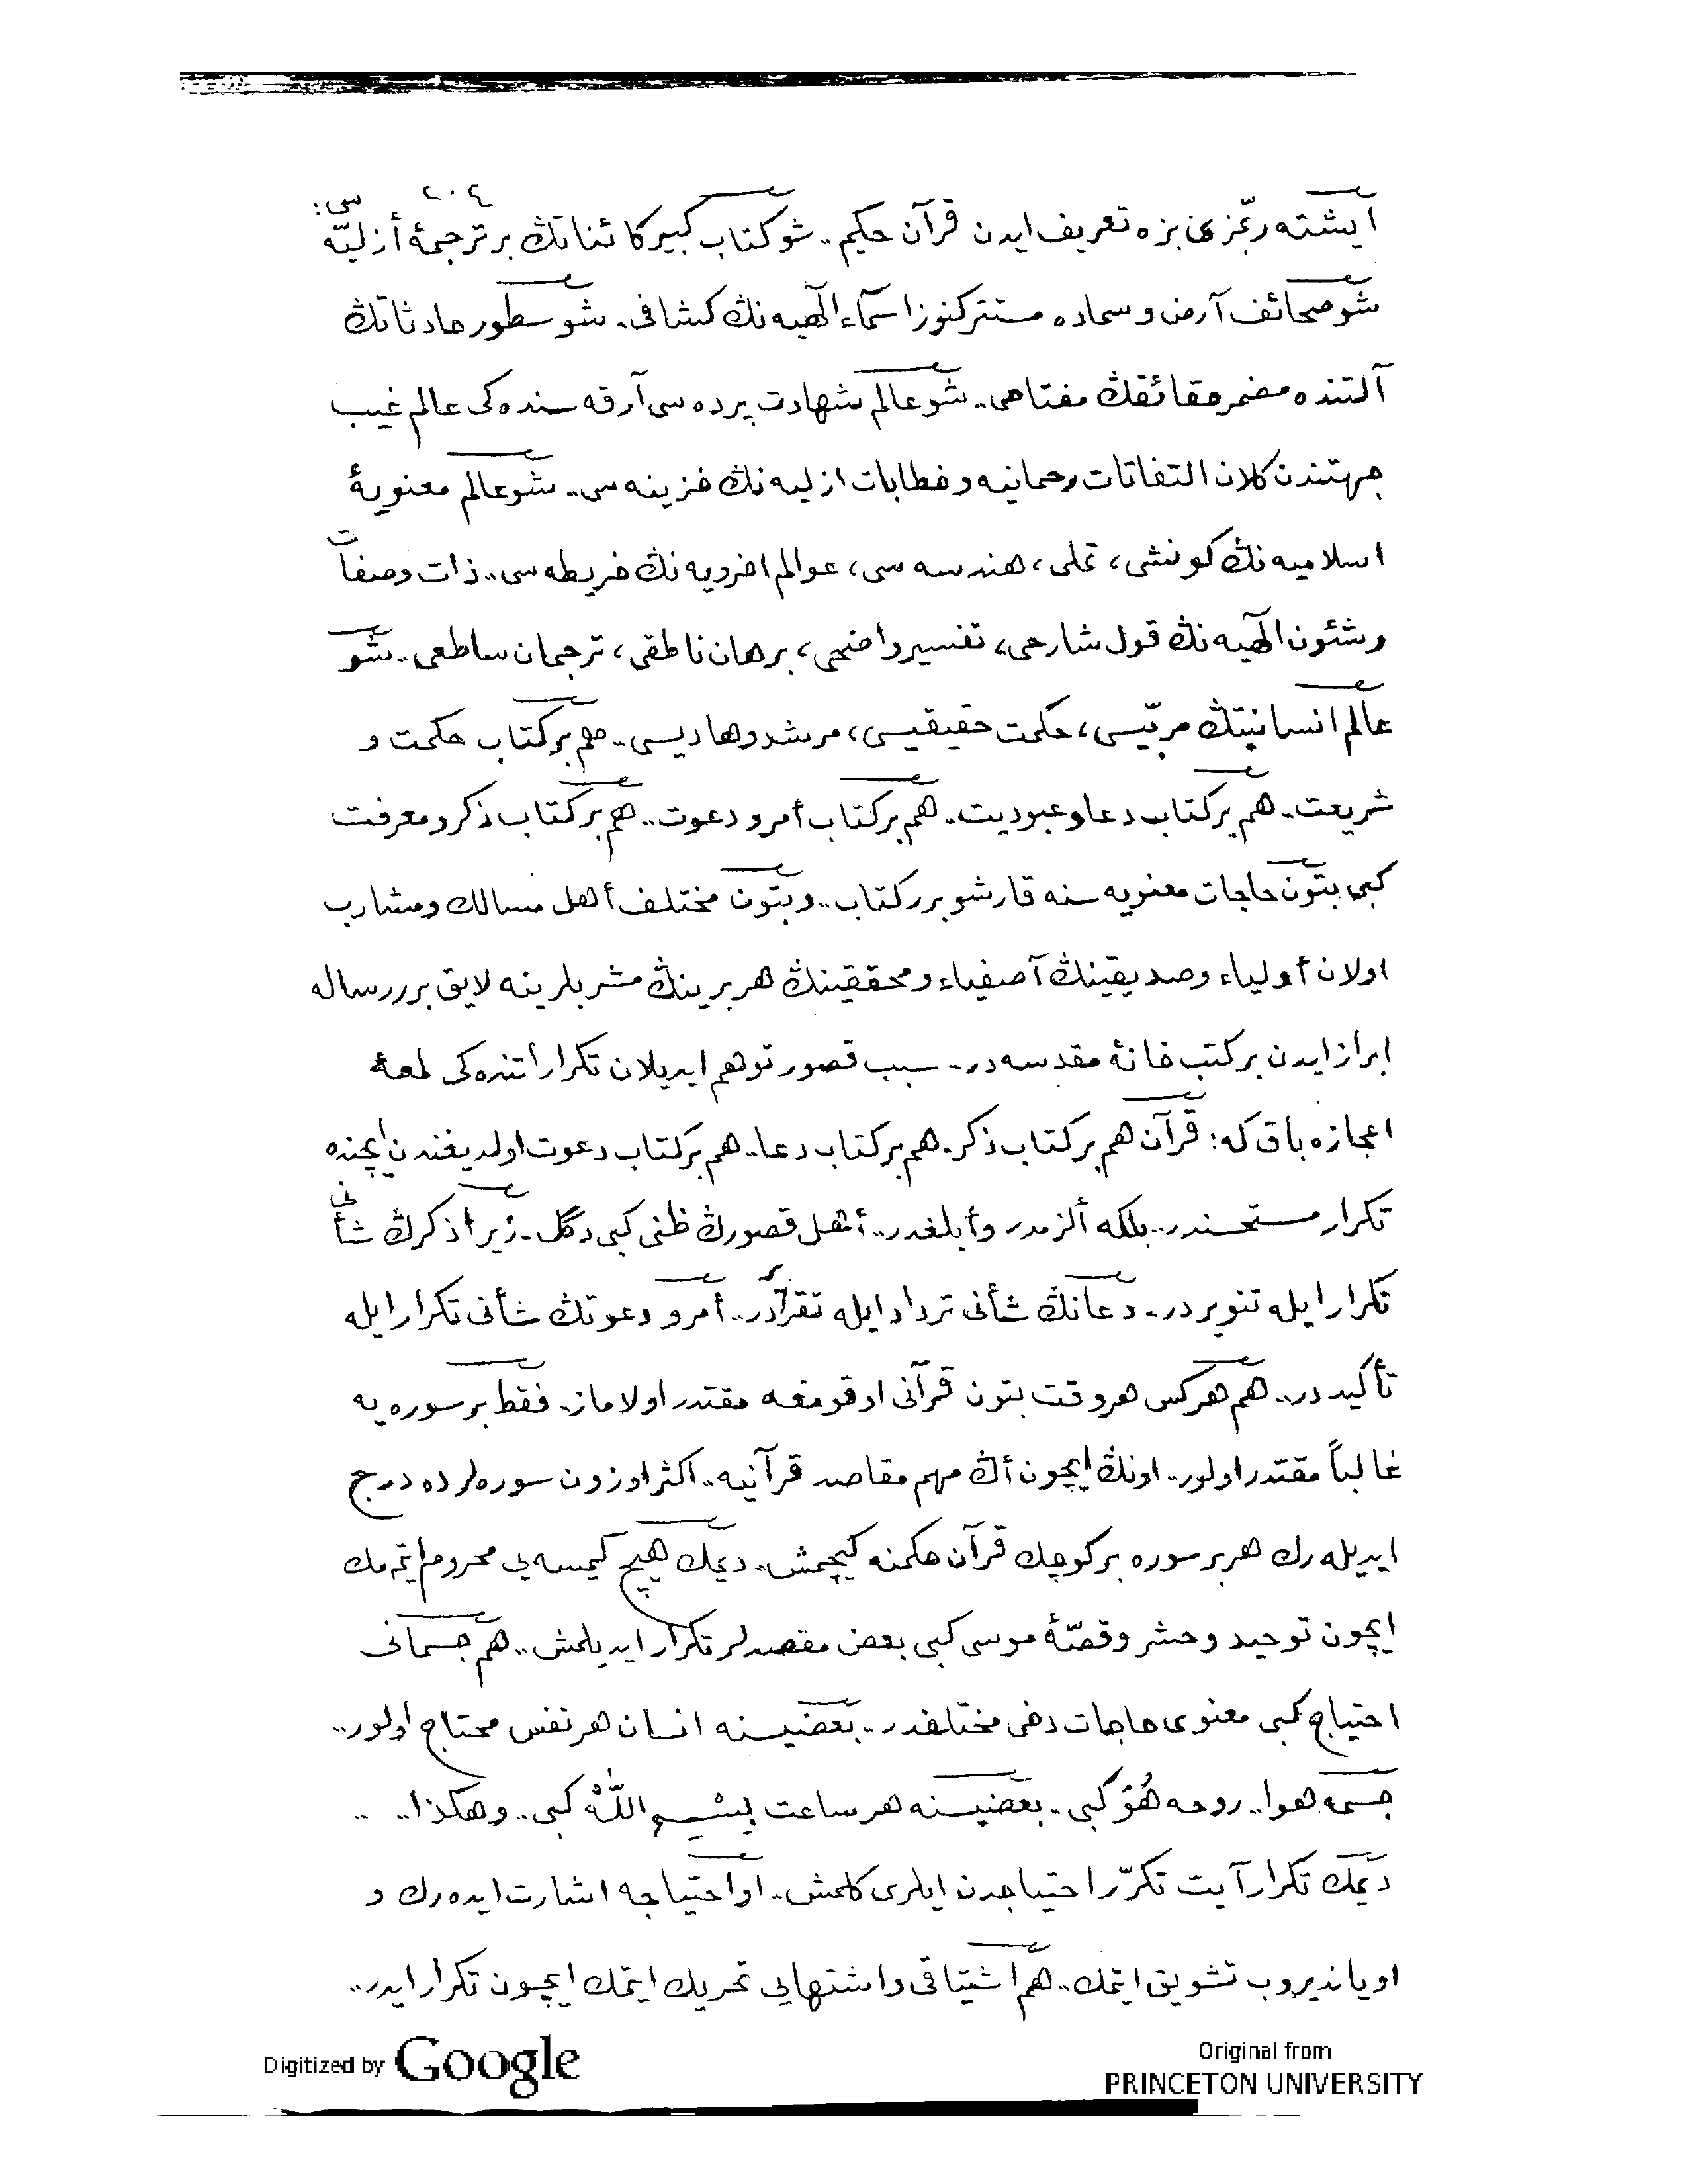 ٢٠٤
ايشته ربّمزى بزه تعريف ايدن قرآن حكيم.. شو كتاب كبير كائناتڭ بر ترجمۀ أزليّه سى:
شو صحائف آرض و سماده مستتر كنوز اسمآء الٓهيه نڭ كشافى. شو سطور حادثاتڭ
آلتنده مضمر حقائقڭ مفتاحى.. شو عالم شهادت پرده سى آرقه سنده كى عالم غيب
جهتندن كلان التفاتات رحمانيه و خطابات ازليه نڭ خزينه سى.. شو عالم معنويۀ
اسلاميه نڭ كونشى، تملى، هندسه سى، عوالم اخرويه نڭ خريطه سى.. ذات وصفات
وشئون الٓهيه نڭ قول شارحى، تفسير واضحى، برهان ناطقى، ترجمان ساطعى.. شو
عالم انسانيتڭ مربّيسى، حكمت حقيقيسى، مرشد وهاديسى.. هم بر كتاب حكمت و
شريعت. هم بر كتاب دعا وعبوديت. هم بر كتاب أمر و دعوت.. هم بر كتاب ذكر ومعرفت
كبى بتون حاجات معنويه سنه قارشو برر كتاب.. وبتون مختلف أهل مسالك ومشارب
اولان أولياء وصديقينڭ آصفياء ومحققينڭ هر برينڭ مشربلرينه لايق برر رساله
ابراز ايدن بر كتب خانۀ مقدسه در.. سبب قصور توهم ايديلان تكراراتنده كى لمعۀ
اعجازه باق كه: قرآن هم بر كتاب ذكر. هم بر كتاب دعا.. هم بر كتاب دعوت اولديغندن ايچنده
تكرار مستحسندر.. بلكه ألزمدر وأبلغدر.. أهل قصورڭ ظنى كبى دگل. زيرا ذكرڭ شأنى
تكرار ايله تنويردر.. دعانڭ شأنى ترداد ايله تقرّردر.. أمر و دعوتڭ شأنى تكرار ايله
تأكيددر.. هم هركس هر وقت بتون قرآنى اوقومغه مقتدر اولاماز. فقط بر سوره يه
غالباً مقتدر اولور.. اونڭ ايچون أڭ مهم مقاصد قرآنيه.. اكثر اوزون سوره لرده درج
ايديله رك هر بر سوره بر كوچك قرآن حكمنه كيچمش.. ديمك هيچ كيمسه يى محروم ايتمه مك
ايچون توحيد وحشر وقصّۀ موسى كبى بعض مقصدلر تكرار ايديلمش.. هم جسمانى
احتياج كبى معنوى حاجات دخى مختلفدر.. بعضيسنه انسان هر نفس محتاج اولور..
جسمه هوا.. روحه هُوَ كبى.. بعضيسنه هر ساعت بِسْمِ اللّٰهْ كبى.. وهكذا.. ..
ديمك تكرار آيت تكرّر احتياجدن ايلرى كلمش.. او احتياجه اشارت ايده رك و
اويانديروب تشويق ايتمك.. هم اشتياقى و اشتهايى تحريك ايتمك ايچون تكرار ايدر..
Digitized by Google
Original from
PRINCETON UNIVERSITY